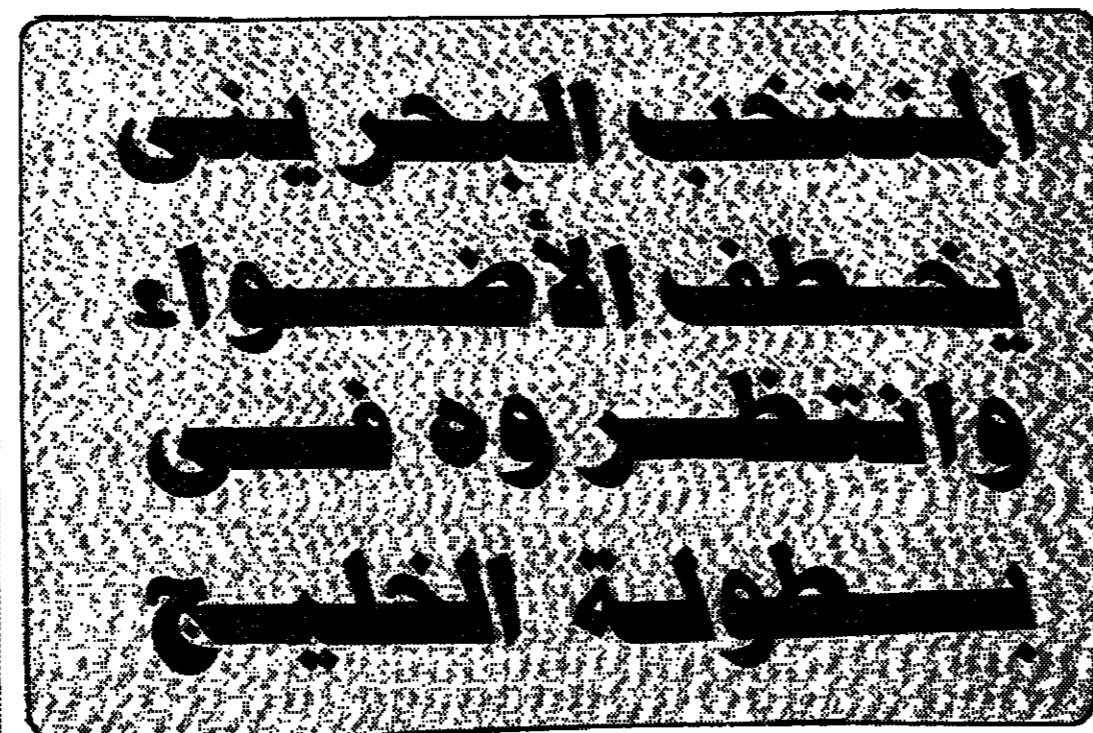 المنتخب البحرينى
يخطف الأضواء
وانتظروه فى
بطولة الخليج